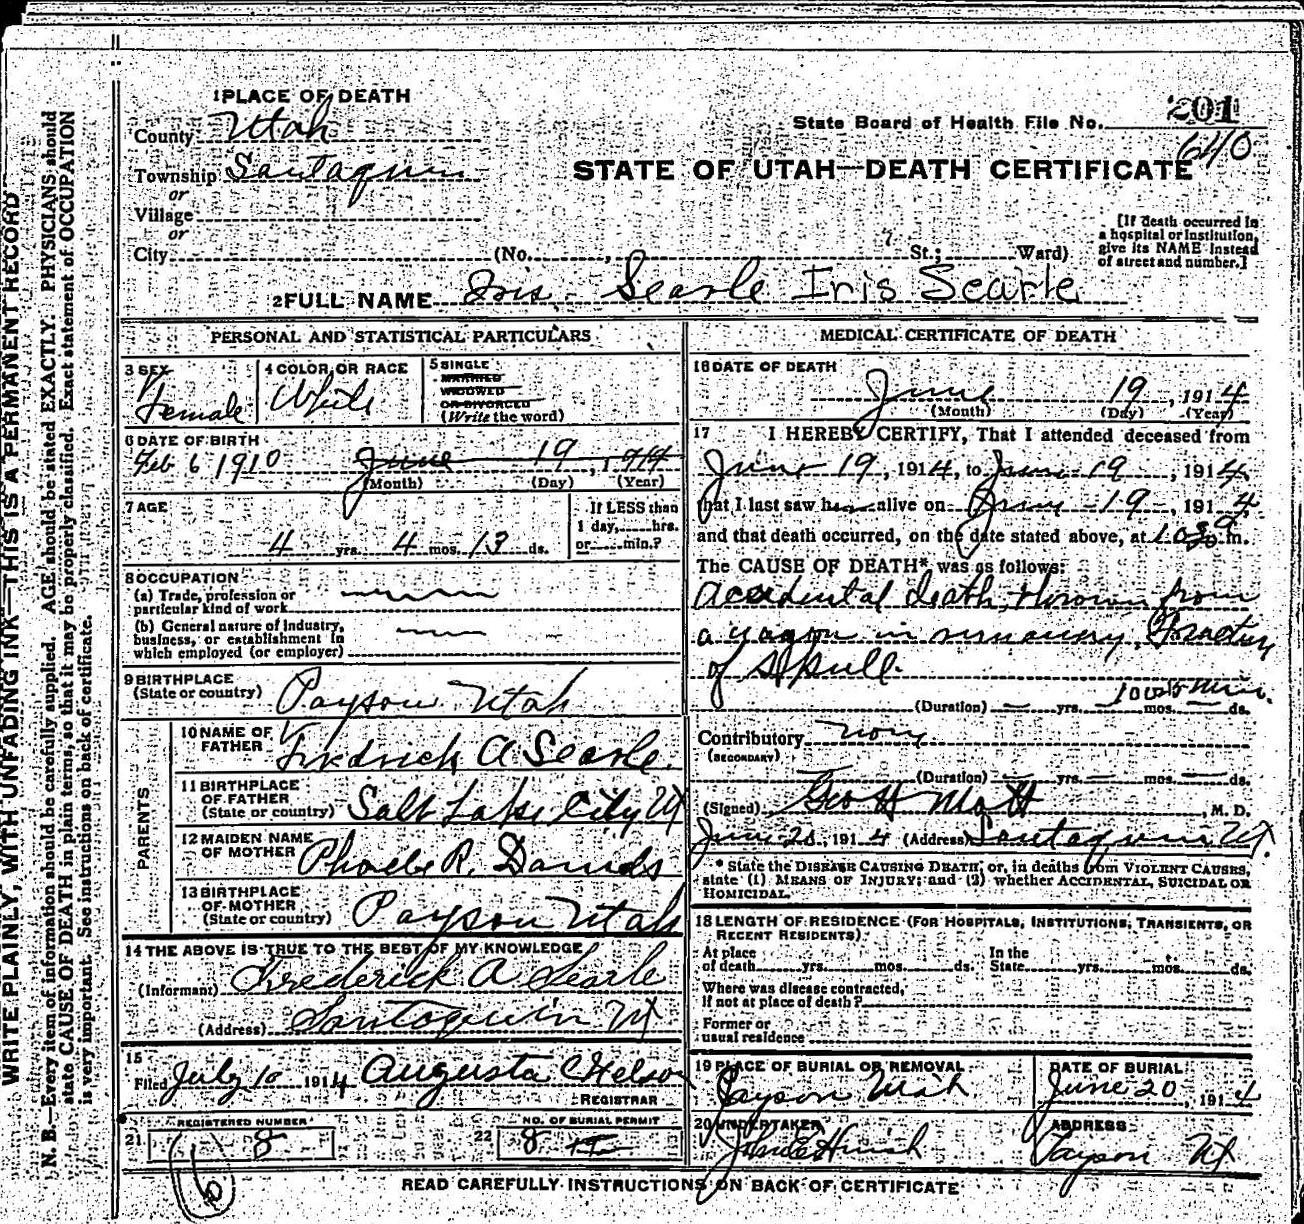 WRITE PLAINLY, WITH UNFADING INK—THIS IS A PERMANENT RECORD
N. B.—Every item of information should be carefully supplied. AGE should be stated EXACTLY. PHYSICIANS should
state CAUSE OF DEATH in plain terms, so that it may be properly classified. Exact statement of OCCUPATION
is very important. See instructions on back of certificate.
1 PLACE OF DEATH
County Utah
Township Santaquin
or
Village
or
City (No. , St.; Ward)
201
State Board of Health File No.
640
STATE OF UTAH—DEATH CERTIFICATE
[If death occurred in
a hospital or institution,
give its NAME instead
of street and number.]
2 FULL NAME Iris Searle Iris Searle
PERSONAL AND STATISTICAL PARTICULARS
3 SEX
Female
4 COLOR OR RACE
White
5 SINGLE
MARRIED
WIDOWED
OR DIVORCED
(Write the word)
6 DATE OF BIRTH
Feb 6 1910 June 19, 1914
(Month) (Day) (Year)
7 AGE
4 yrs. 4 mos. 13 ds.
If LESS than
1 day, hrs.
or min.?
8 OCCUPATION
(a) Trade, profession or
particular kind of work
(b) General nature of Industry,
business, or establishment in
which employed (or employer)
9 BIRTHPLACE
(State or country) Payson Utah
PARENTS
10 NAME OF
FATHER Fredrick A Searle
11 BIRTHPLACE
OF FATHER
(State or country) Salt Lake City Ut
12 MAIDEN NAME
OF MOTHER Phoebe R. Daniels
13 BIRTHPLACE
OF MOTHER
(State or country) Payson Utah
14 THE ABOVE IS TRUE TO THE BEST OF MY KNOWLEDGE
(Informant) Frederick A Searle
(Address) Santaquin Ut
15
Filed July 10 1914 Augusta C Nelson
REGISTRAR
21 REGISTERED NUMBER
8
22 NO. OF BURIAL PERMIT
8
MEDICAL CERTIFICATE OF DEATH
16 DATE OF DEATH
June 19, 1914
(Month) (Day) (Year)
17 I HEREBY CERTIFY, That I attended deceased from
June 19, 1914, to June 19, 1914
that I last saw her alive on June 19, 1914
and that death occurred, on the date stated above, at m.
The CAUSE OF DEATH* was as follows:
Accidental death, thrown from
a wagon in runaway, Fracture
of skull.
(Duration) yrs. mos. ds.
Contributory None
(SECONDARY)
(Duration) yrs. mos. ds.
(Signed) Geo H Mott, M. D.
June 20, 1914 (Address) Santaquin Ut.
* State the DISEASE CAUSING DEATH, or, in deaths from VIOLENT CAUSES,
state (1) MEANS OF INJURY; and (2) whether ACCIDENTAL, SUICIDAL OR
HOMICIDAL.
18 LENGTH OF RESIDENCE (FOR HOSPITALS, INSTITUTIONS, TRANSIENTS, OR
RECENT RESIDENTS)
At place
of death yrs. mos. ds.
In the
State yrs. mos. ds.
Where was disease contracted,
If not at place of death?
Former or
usual residence
19 PLACE OF BURIAL OR REMOVAL
Payson Utah
DATE OF BURIAL
June 20, 1914
20 UNDERTAKER
ADDRESS
Payson Ut
READ CAREFULLY INSTRUCTIONS ON BACK OF CERTIFICATE